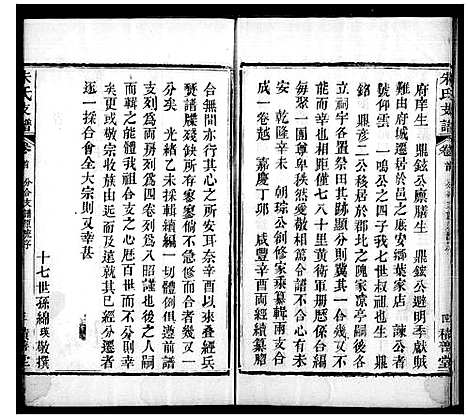 朱氏支譜
卷首
府庠生 鼎鉉公廪膳生 鼎鉉公避明季獻賊
難由府城遷居於邑之底安鄉葉家店 諫公者
號仰雲 一鳴公之四子我七世叔祖也生 鼎
銘 鼎彥二公移居於郡北之隗家凉亭嗣後各
立祠宇各置祭田其跡顯分則冀其一合幾又不
能而幸也僅相距六七十里黃衛軍册歷係仍共
一團尊卑秩然愛敬相合譜牒雖不合心有未
安 乾隆辛未 朝琮公創修家乘纂輯兩支合
成一卷越 嘉慶丁卯 咸豐辛酉三
四 積善堂
台無間亦行其心之所安耳奈辛酉以後疊經兵
燹譜牒殘缺所存寥寥倘不急修而一合幾又幾
分矣 光緒乙未採輯續編一切俱遵前譜
支列為四卷列為八昭謹也從兹之人嗣
而輯之能體我祖合支之心歷百世而不至
意又或敬宗敦族由近而及遠將已經分遷者
逐一採合會全大宗則又幸甚
十七世孫綿瑛敬撰
朱氏支譜
卷首
積善堂